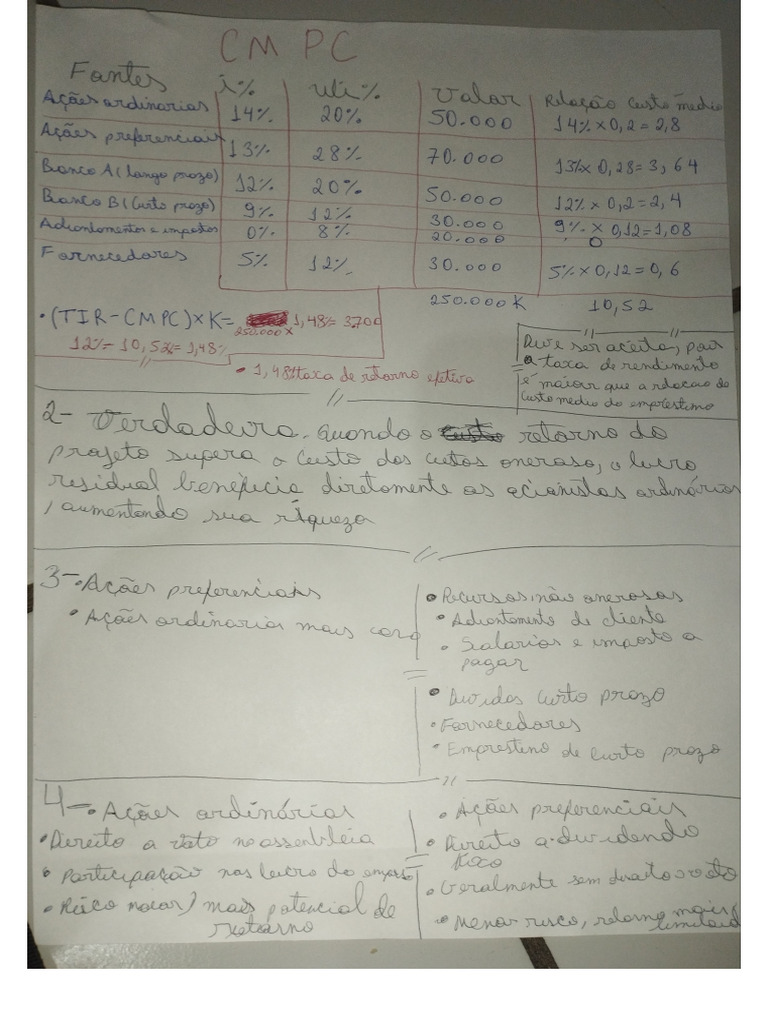 CMPC
Fontes i% Uti% Valor Relação Custo médio
Ações ordinarias 14% 20% 50.000 14% x 0,2 = 2,8
Ações preferenciais 13% 28% 70.000 13% x 0,28 = 3,64
Banco A (longo prazo) 12% 20% 50.000 12% x 0,2 = 2,4
Banco B (Curto prazo) 9% 12% 30.000 9% x 0,12 = 1,08
Adiantamentos e impostos 0% 8% 20.000 0
Fornecedores 5% 12% 30.000 5% x 0,12 = 0,6
250.000 K 10,52
• (TIR - CMPC) x K = 250.000 x 1,48% = 3.700
12% - 10,52% = 1,48%
• 1,48% taxa de retorno efetiva
Deve ser aceito, pois
a taxa de rendimento
é maior que a relacao do
Custo medio do emprestimo
2- Verdadeira. Quando o retorno do
projeto supera o Custo dos custos oneroso, o lucro
residual beneficia diretamente os acionistas ordinários
, aumentando sua riqueza
3- • Ações preferenciais
• Ações ordinarias mais cara
• Recursos não onerosos
• Adiantamento de cliente
• Salarios e imposto a
pagar
• Dividas Curto prazo
• Fornecedores
• Emprestimo de Curto prazo
4- • Ações ordinárias
• Direito a voto na assembleia
• Participação nos lucro da
• Risco maior / mais potencial de
retorno
• Ações preferenciais
• Direito a dividendo
fixo
• Geralmente sem direito a voto
• Menor risco, retorno mais
limitado